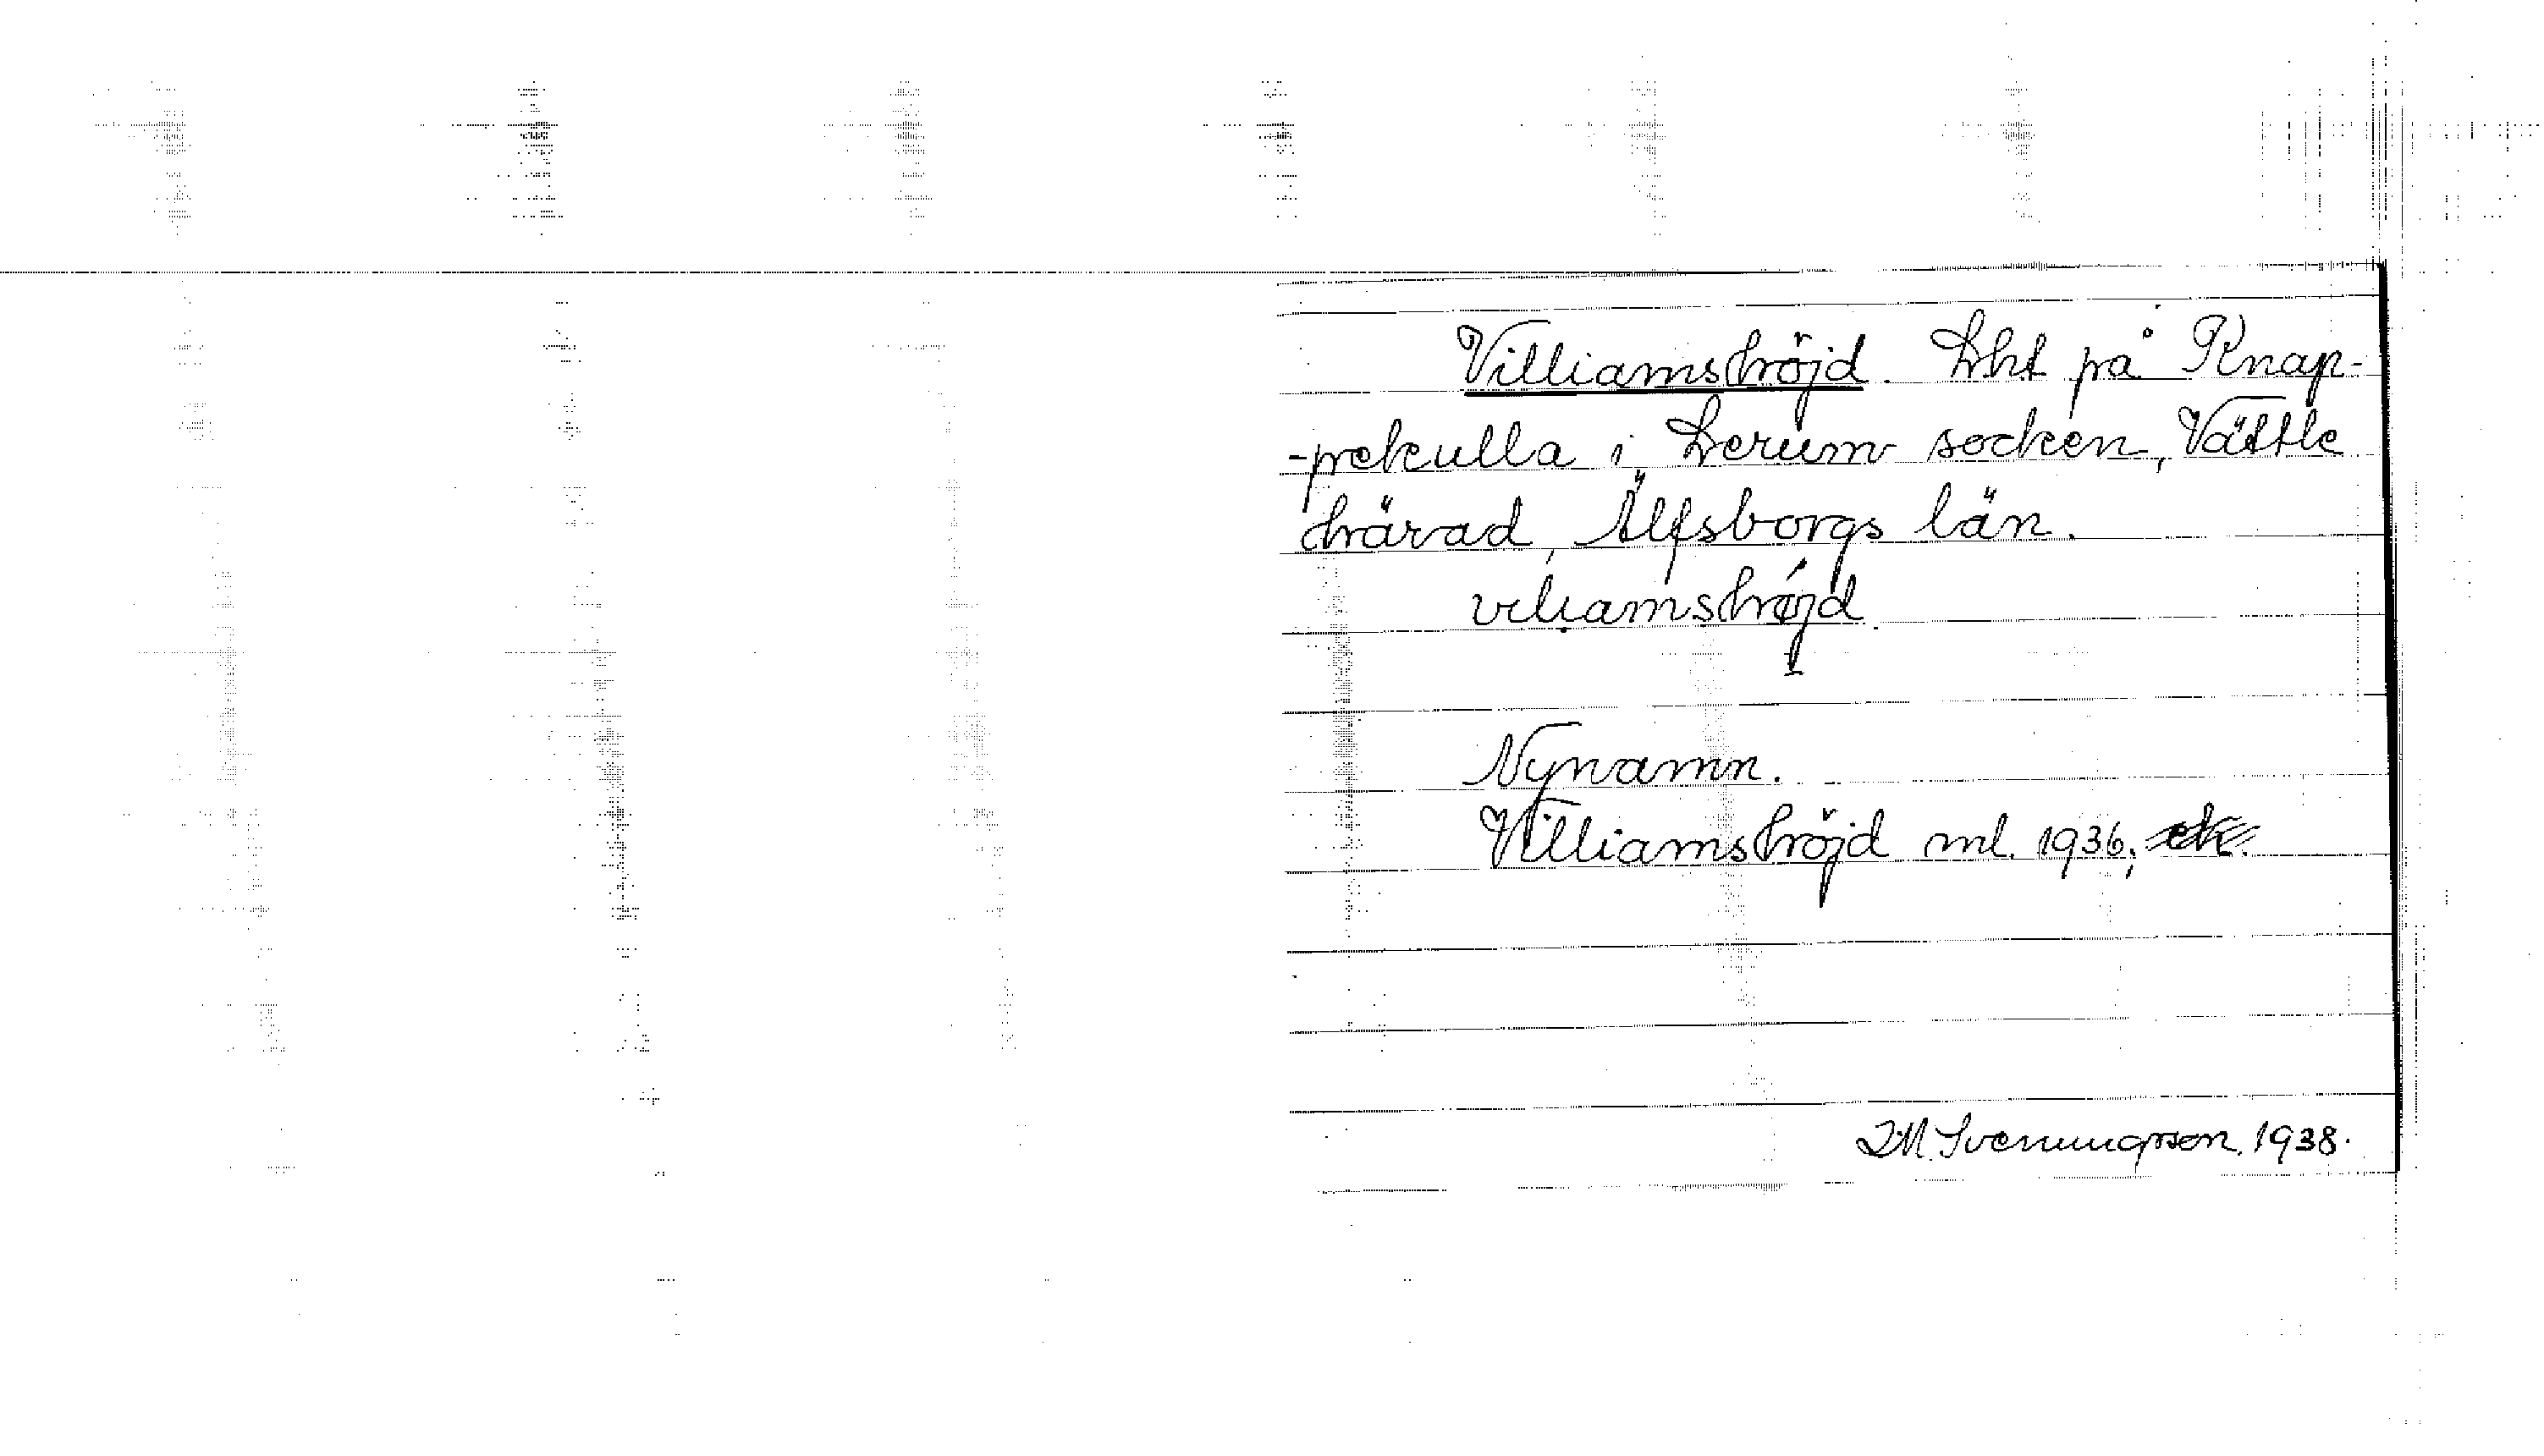 Villiamshöjd. Lht på Knap-
-pekulla i Lerum socken, Vättle
härad, Älfsborgs län.
viliamshøjd.
Nynamn.
Villiamshöjd ml. 1936,
I.M. Svenningson. 1938.